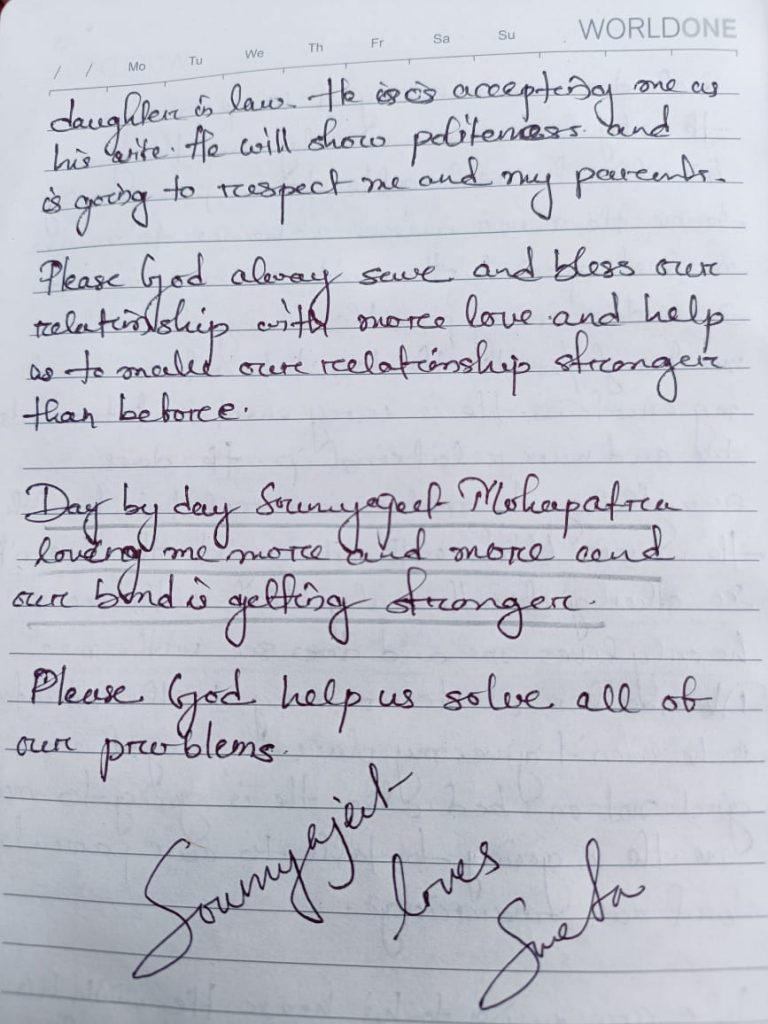 WORLDONE
/ / Mo Tu We Th Fr Sa Su
daughter is law. He is is accepting me as
his wife. He will show politeness and
is going to respect me and my parents.
Please God alway save and bless our
relationship with more love and help
us to make our relationship stronger
than before.
Day by day Soumyajeet Mohapatra
loving me more and more and
our bond is getting stronger.
Please God help us solve all of
our problems.
Soumyajeet
loves
Sweta